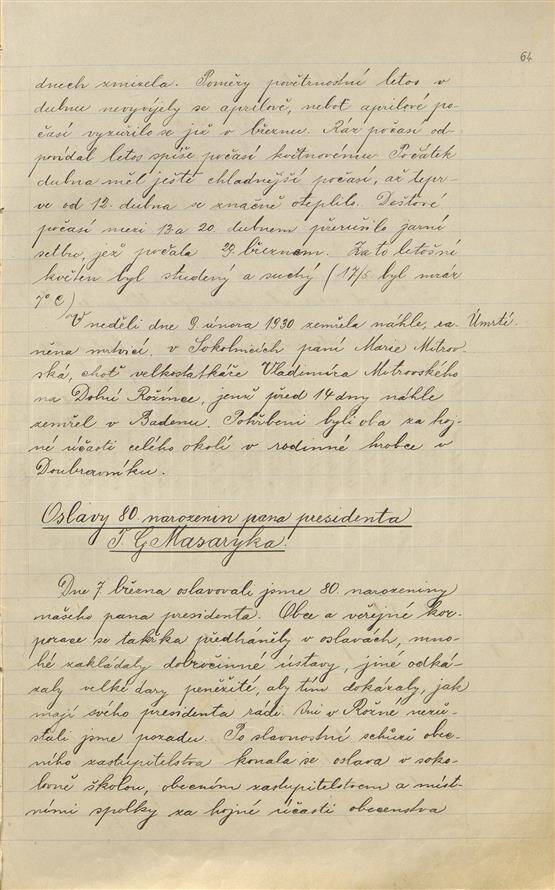 64
dnech zmizela. Poměry povětrnostní letos v
dubnu nevyvíjely se aprilově, neboť aprilové po-
časí vyzuřilo se již v březnu. Ráz počasí od-
povídal letos spíše počasí květnovému. Počátek
dubna měl ještě chladnější počasí, až tepr-
ve od 12. dubna se značně oteplilo. Deštivé
počasí mezi 13 a 20. dubnem přerušilo jarní
setbu, jež počala 29. březnem. Za to letošní
květen byl studený a suchý (17/5 byl mráz
7° C)
V neděli dne 9. února 1930 zemřela náhle, ra- Úmrtí.
něna mrtvicí, v Sokolnicích paní Marie Mitrov-
ská, choť velkostatkáře Vladimíra Mitrovského
na Dolní Rožínce, jenž před 14 dny náhle
zemřel v Badenu. Pohřbeni byli oba za hoj-
né účasti celého okolí v rodinné hrobce v
Doubravníku.
Oslavy 80. narozenin pana presidenta
T. G. Masaryka
Dne 7. března oslavovali jsme 80. narozeniny
našeho pana presidenta. Obce a veřejné kor-
porace se takřka předháněly v oslavách, mno-
hé zakládaly dobročinné ústavy, jiné odká-
zaly velké dary peněžité, aby tím dokázaly, jak
mají svého presidenta rádi. Ani v Rožné nezů-
stali jsme pozadu. Po slavnostní schůzi obec-
ního zastupitelstva konala se oslava v soko-
lovně školou, obecním zastupitelstvem a míst-
ními spolky za hojné účasti obecenstva